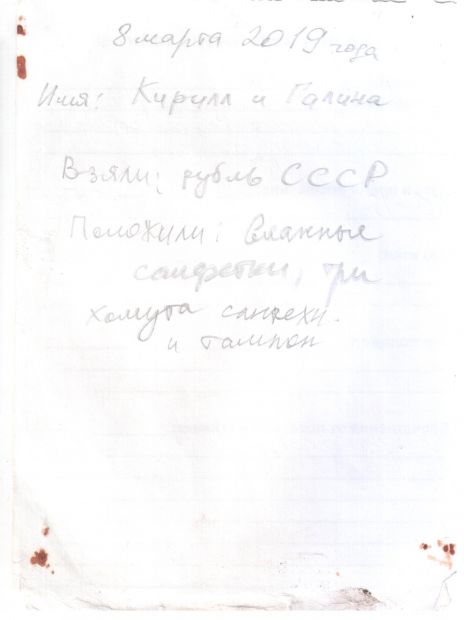 8 марта 2019 года
Имя: Кирилл и Галина
Взяли: рубль СССР
Положили: влажные
салфетки, три
хомута сантехн.
и тампон